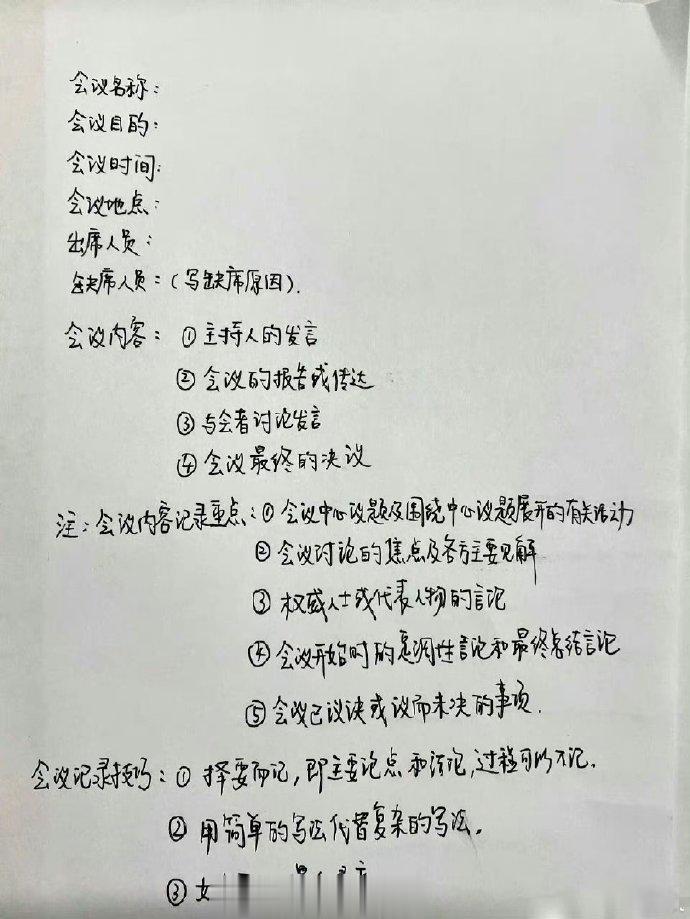 会议名称：
会议目的：
会议时间：
会议地点：
出席人员：
缺席人员：（写缺席原因）.
会议内容：①主持人的发言
②会议的报告或传达
③与会者讨论发言
④会议最终的决议
注：会议内容记录重点：①会议中心议题及围绕中心议题展开的有关活动
②会议讨论的焦点及各方主要见解
③权威人士或代表人物的言论
④会议开始时的总调性言论和最终总结言论
⑤会议已议决或议而未决的事项.
会议记录技巧：①择要而记，即主要论点和结论，过程可以不记.
②用简单的写法代替复杂的写法。
③